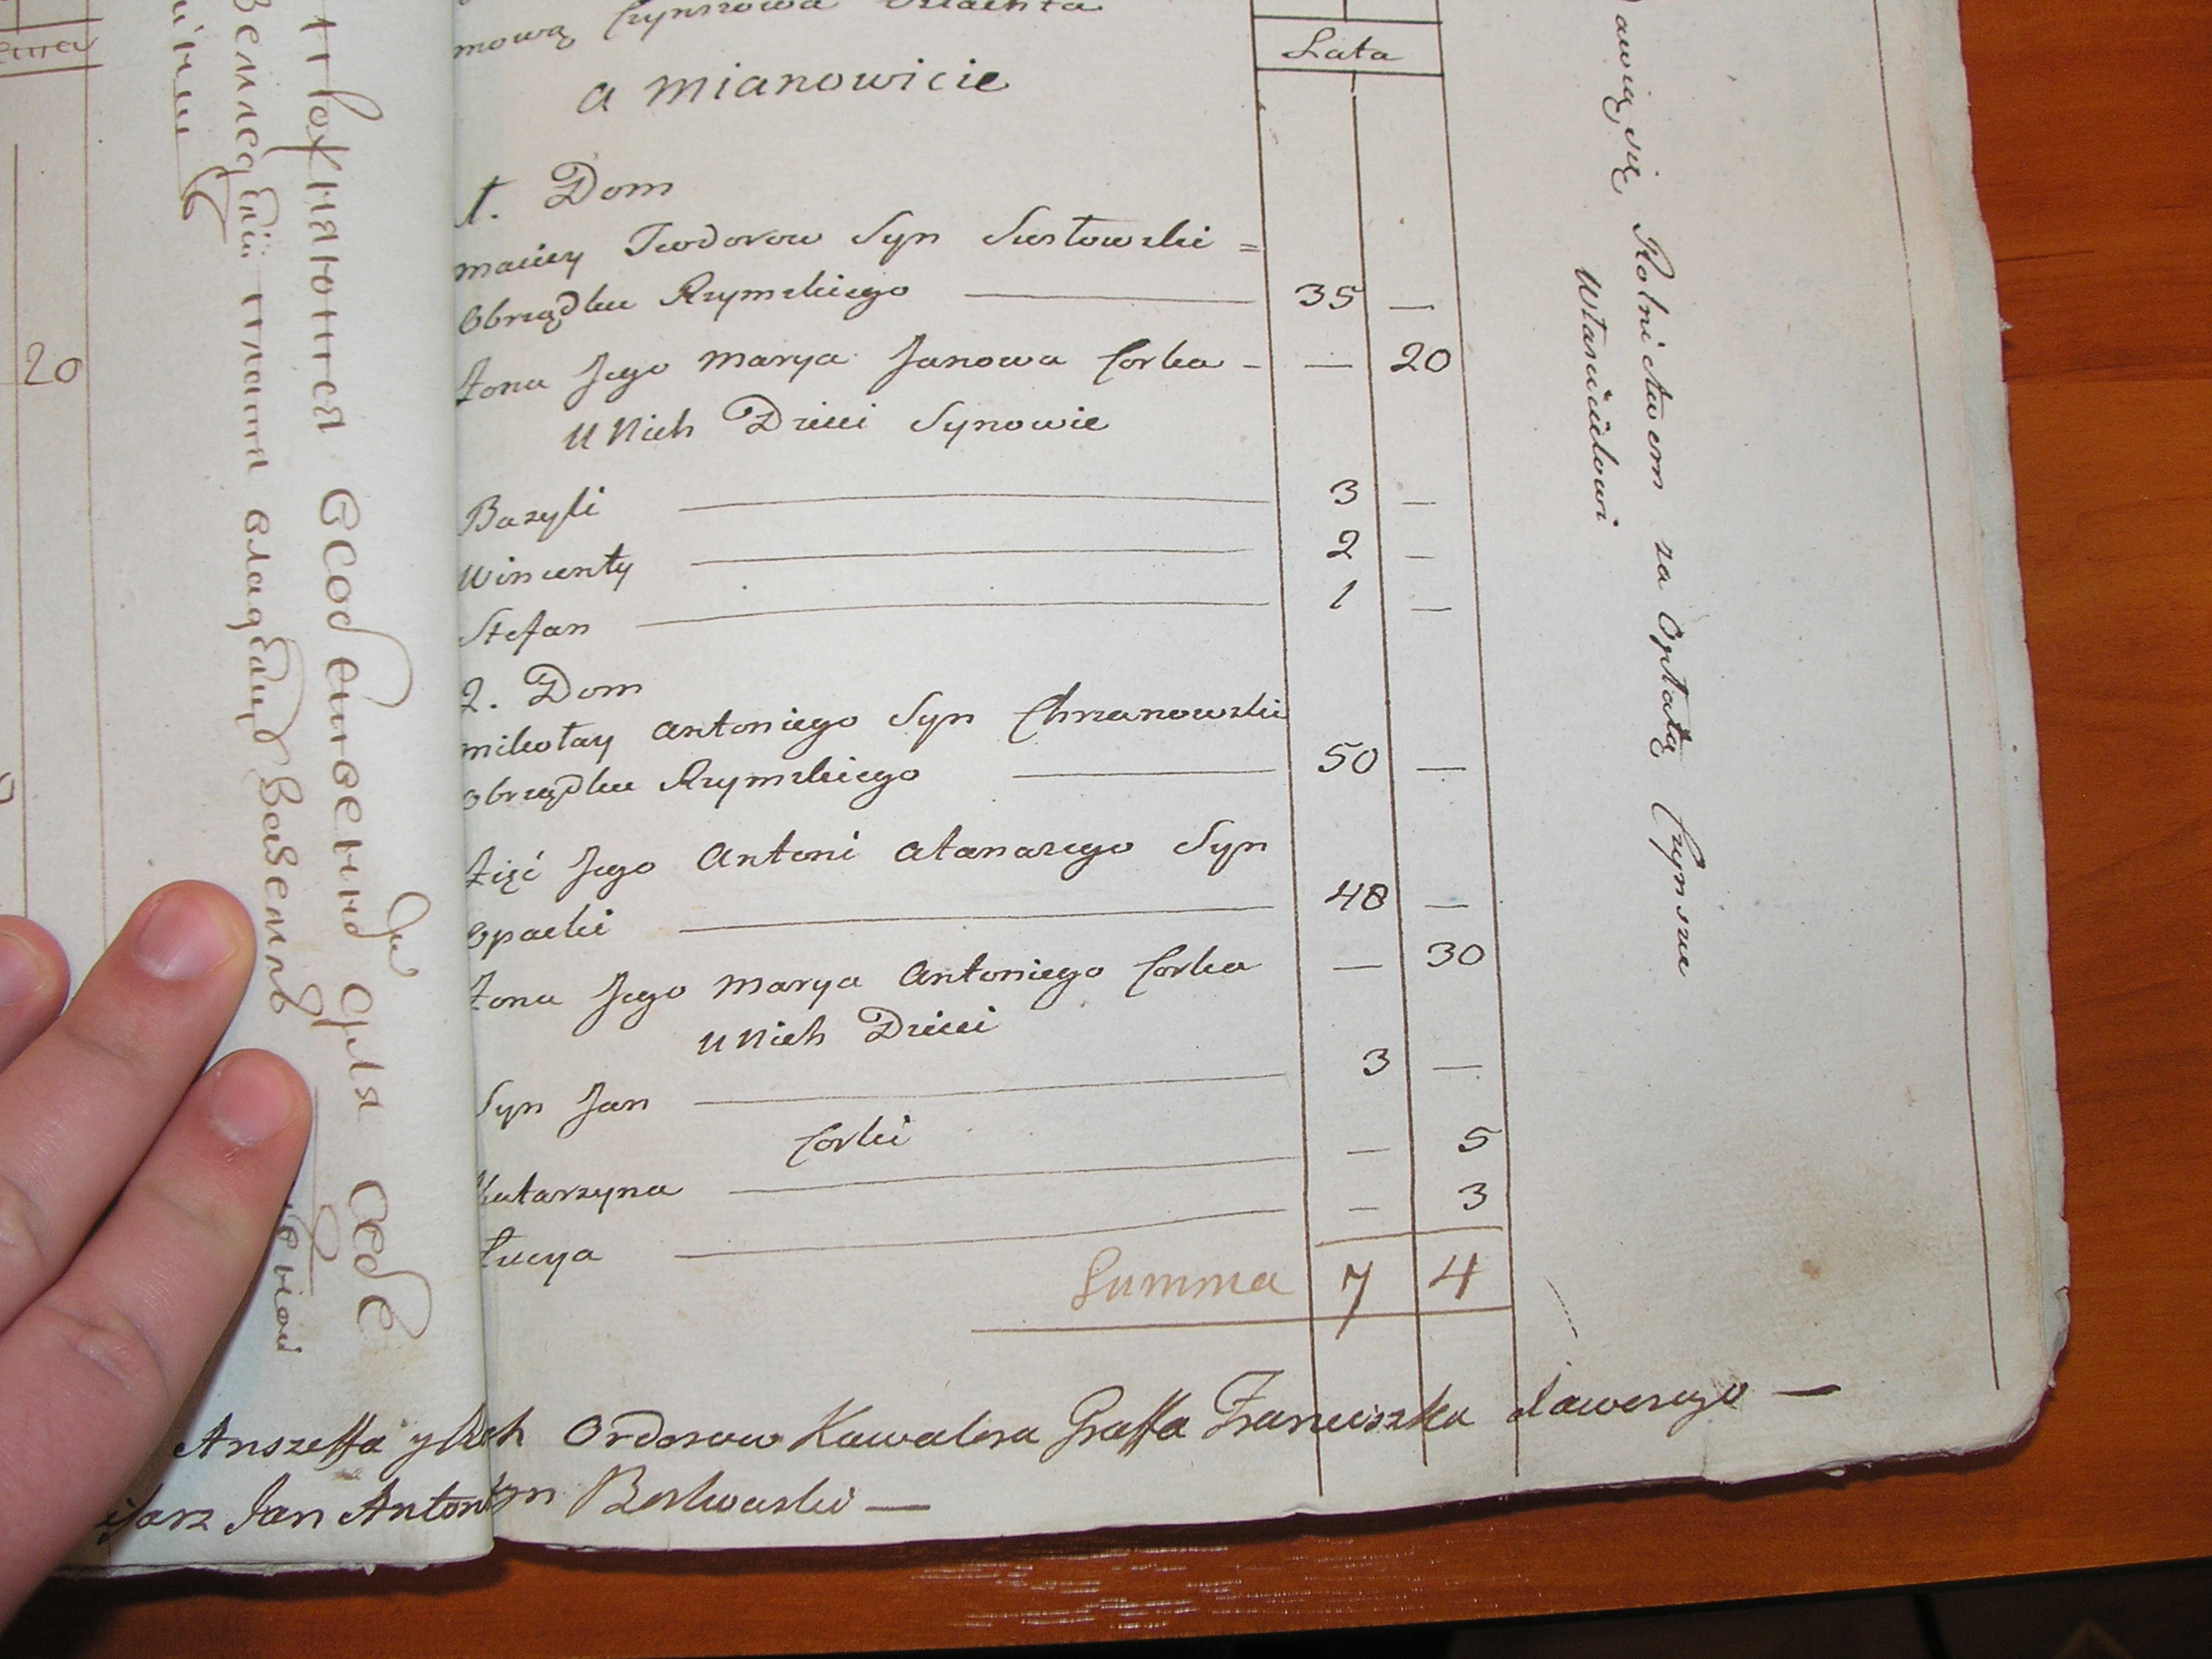 mową Czynszowa Szlachta
Lata
a mianowicie
1. Dom
maciey Teodorow Syn Sustowski =
Obrządku Rzymskiego — 35 —
żona Jego Marya Janowa Corka - — 20
U Nich Dzieci Synowie
Bazyli — 3 —
Wincenty — 2 —
Stefan — 1 —
2. Dom
mikołay Antoniego Syn Chrzanowski
Obrządku Rzymskiego — 50 —
Zięć Jego Antoni Atanazego Syn
Opacki — 48 —
żona Jego Marya Antoniego Corka — 30
U Nich Dzieci
Syn Jan — 3 —
Corki
Katarzyna — — 5
Łucya — — 3
Summa 7 4
Orderow Kawalera Graffa Franciszka Xawerego —
Jan Antoni Syn Borkowski —
awią się Rolnictwem za Opłatą Czynszu
Właścicielowi
20
для себе